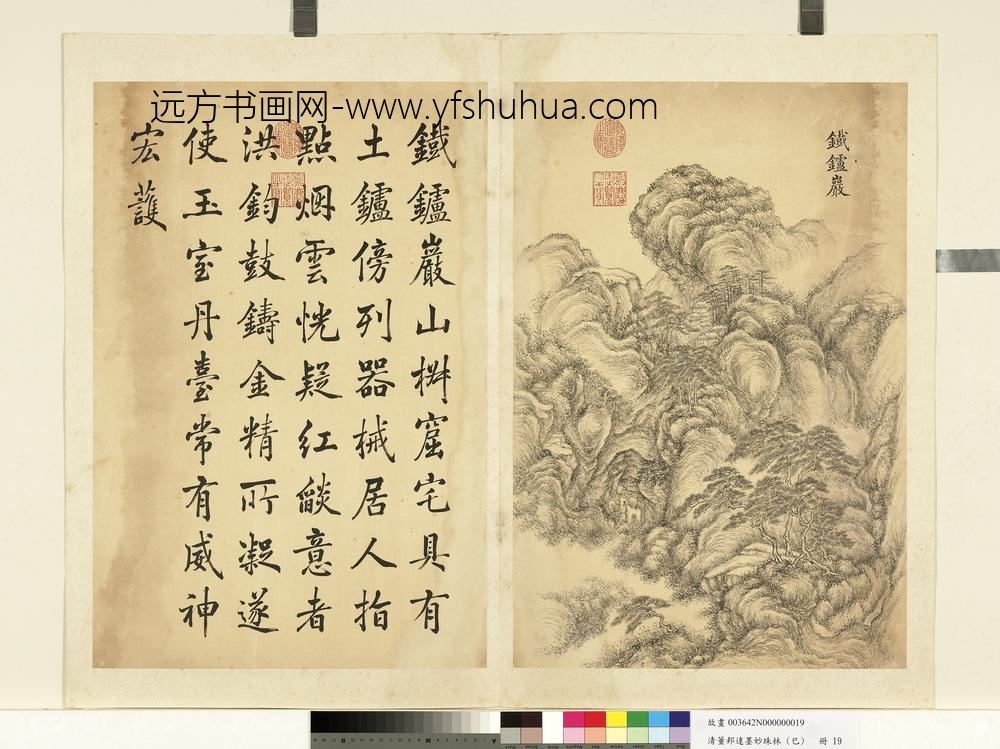 远方书画网-www.yfshuhua.com
鐵鑪巖
鐵鑪巖山椒窟宅具有
土鑪傍列器械居人指
點烟雲恍疑紅燄意者
洪鈞鼓鑄金精所凝遂
使玉室丹臺常有威神
宏䕶
故畫 003642N000000019
清董邦達墨妙珠林（巳） 冊 19